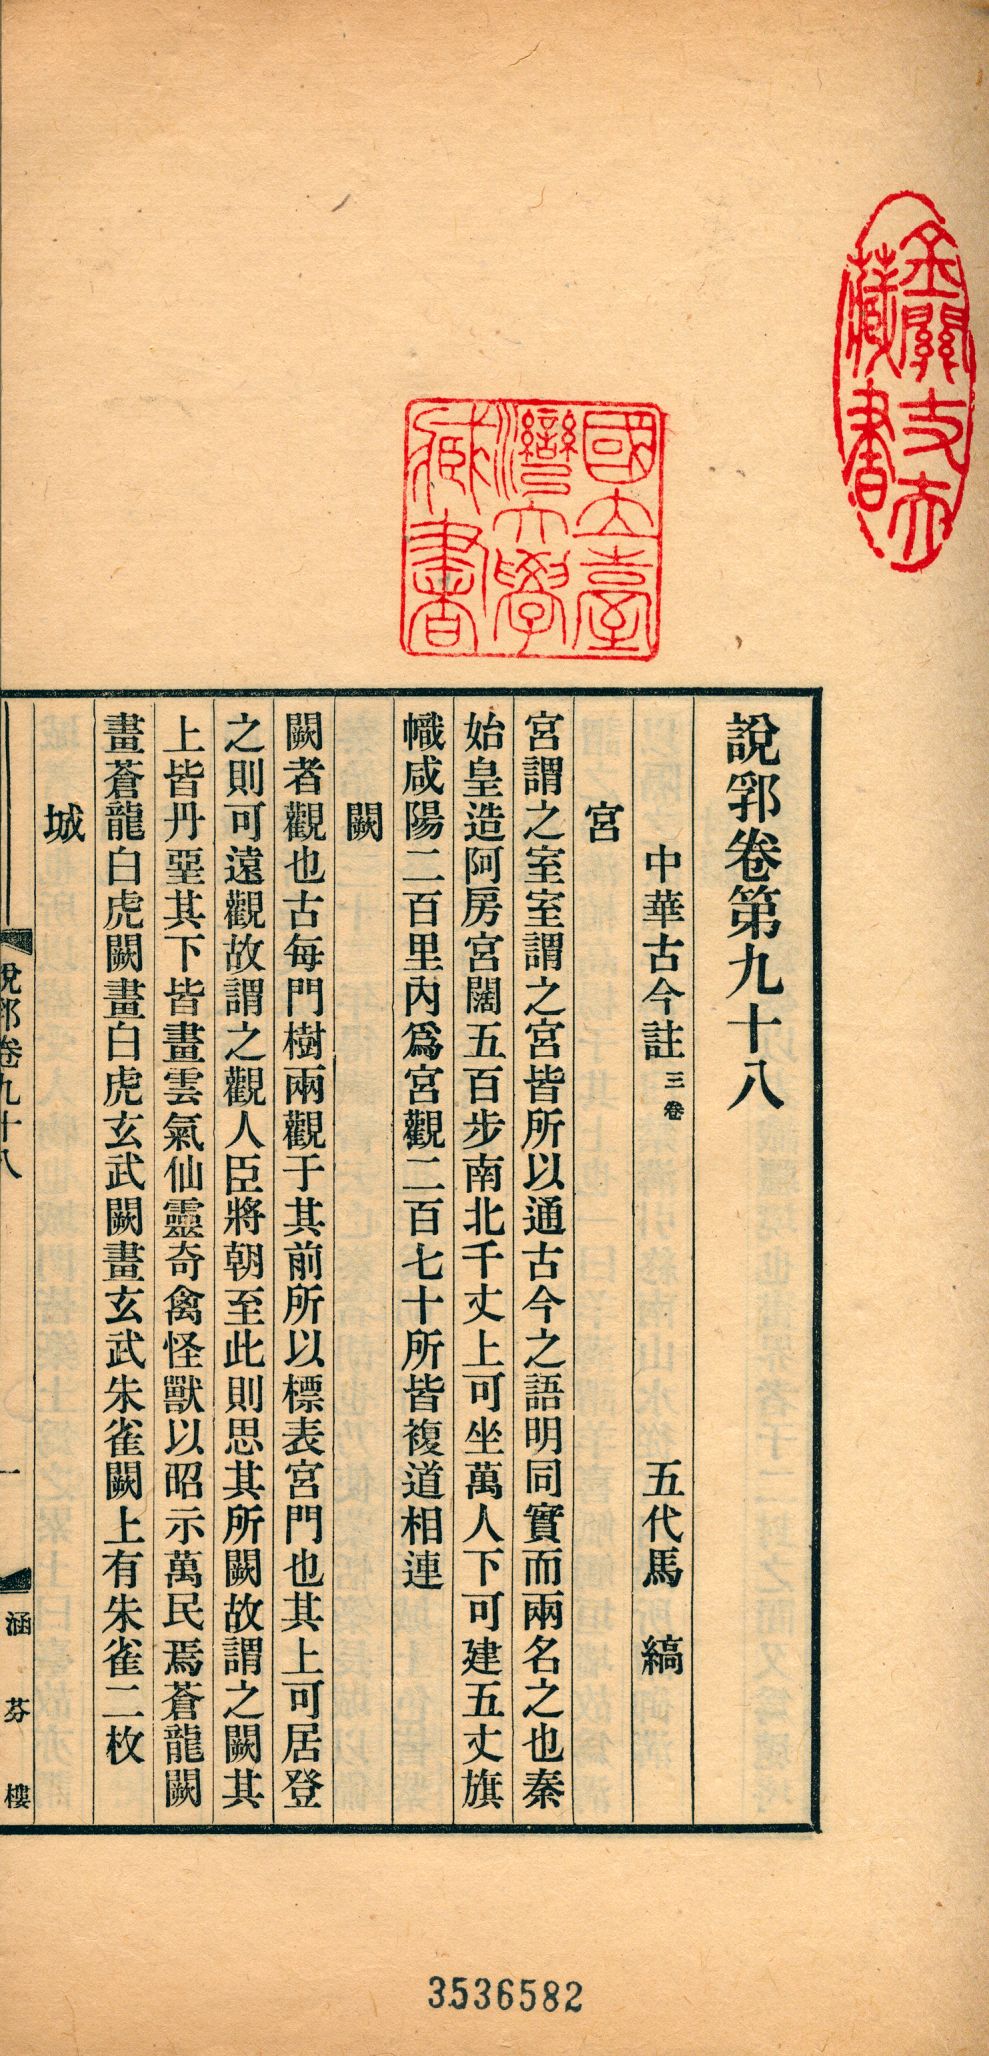 說郛卷第九十八
中華古今註 三卷 五代馬縞
宮
宮謂之室室謂之宮皆所以通古今之語明同實而兩名之也秦
始皇造阿房宮闊五百步南北千丈上可坐萬人下可建五丈旗
幟咸陽二百里內爲宮觀二百七十所皆複道相連
闕
闕者觀也古每門樹兩觀于其前所以標表宮門也其上可居登
之則可遠觀故謂之觀人臣將朝至此則思其所闕故謂之闕其
上皆丹堊其下皆畫雲氣仙靈奇禽怪獸以昭示萬民焉蒼龍闕
畫蒼龍白虎闕畫白虎玄武闕畫玄武朱雀闕上有朱雀二枚
城
說郛卷九十八
一
涵芬樓
國立臺
灣大學
藏書
金關丈夫
藏書
3536582